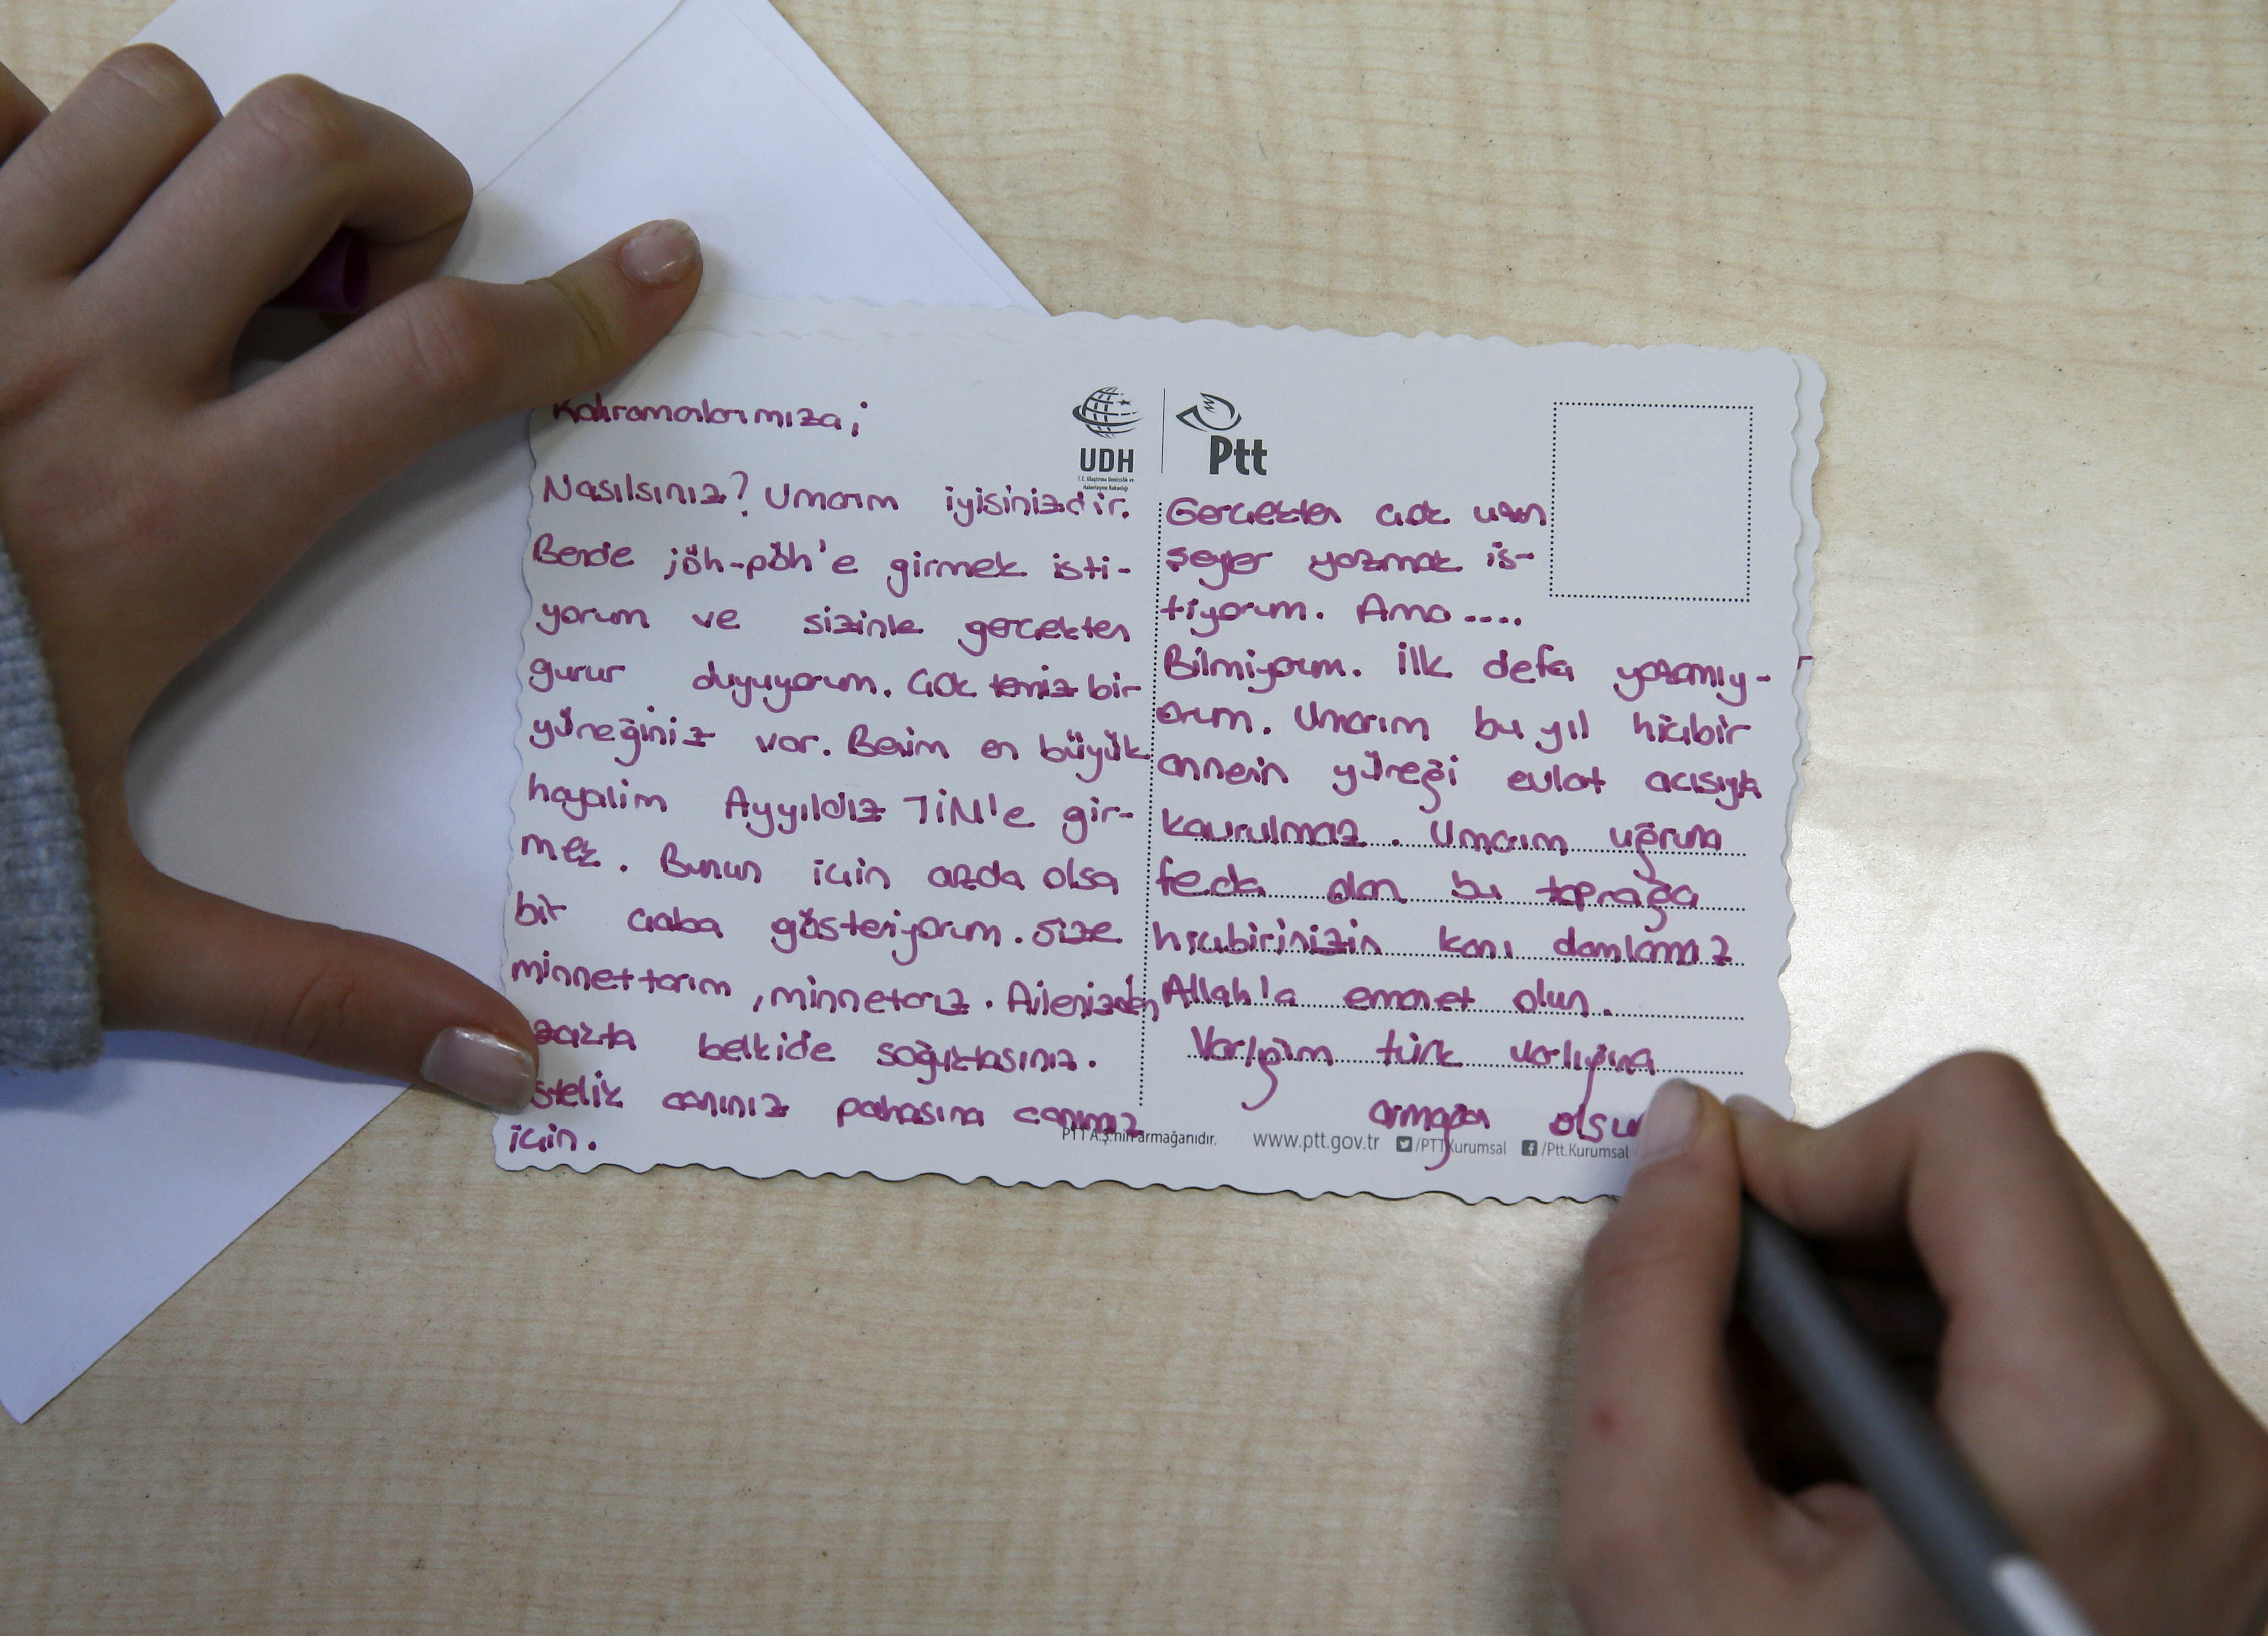 Kahramanlarımıza;
Nasılsınız? Umarım iyisinizdir.
Bende jöh-pöh'e girmek isti-
yorum ve sizinle gerçekten
gurur duyuyorum. Çok temiz bir
yüreğiniz var. Benim en büyük
hayalim Ayyıldız TİM'e gir-
mek. Bunun için azda olsa
bir çaba gösteriyorum. Size
minnettarım, minnetarız. Ailenizden
uzakta belkide soğuktasınız.
stelik canınız pahasına canımız
için.
UDH
T.C. Ulaştırma Denizcilik ve
Haberleşme Bakanlığı
Ptt
Gerçekten çok uzun
şeyler yazmak is-
tiyorum. Ama....
Bilmiyorum. İlk defa yazamıy-
orum. Umarım bu yıl hiçbir
annenin yüreği evlat acısıyla
kavrulmaz. Umarım uğruna
feda olan bu toprağa
hiçbirinizin kanı damlamaz
Allah'a emanet olun.
Varlığım türk varlığına
armağan olsu
PTT A.Ş.'nin armağanıdır. www.ptt.gov.tr /PTTKurumsal /Ptt.Kurumsal